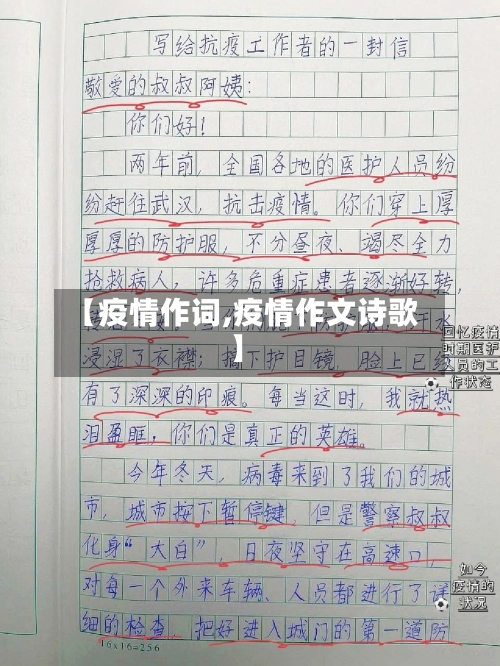 写给抗疫工作者的一封信
敬爱的叔叔阿姨：
你们好！
两年前，全国各地的医护人员纷
纷赶往武汉，抗击疫情。你们穿上厚
厚厚的防护服，不分昼夜、竭尽全力
抢救病人，许多危重症患者逐渐好转，
【疫情作词,疫情作文诗歌
】
汗水
浸湿了衣襟；摘下护目镜，脸上已经
有了深深的印痕。每当这时，我就热
泪盈眶，你们是真正的英雄。
回忆疫情
时期医护
人员的工
作状态
今年冬天，病毒来到了我们的城
市，城市按下暂停键，但是警察叔叔
化身“大白”，日夜坚守在高速口，
对每一个外来车辆、人员都进行了详
细的检查，把好进入城门的第一道防
如今
疫情的
状况
16×16=256